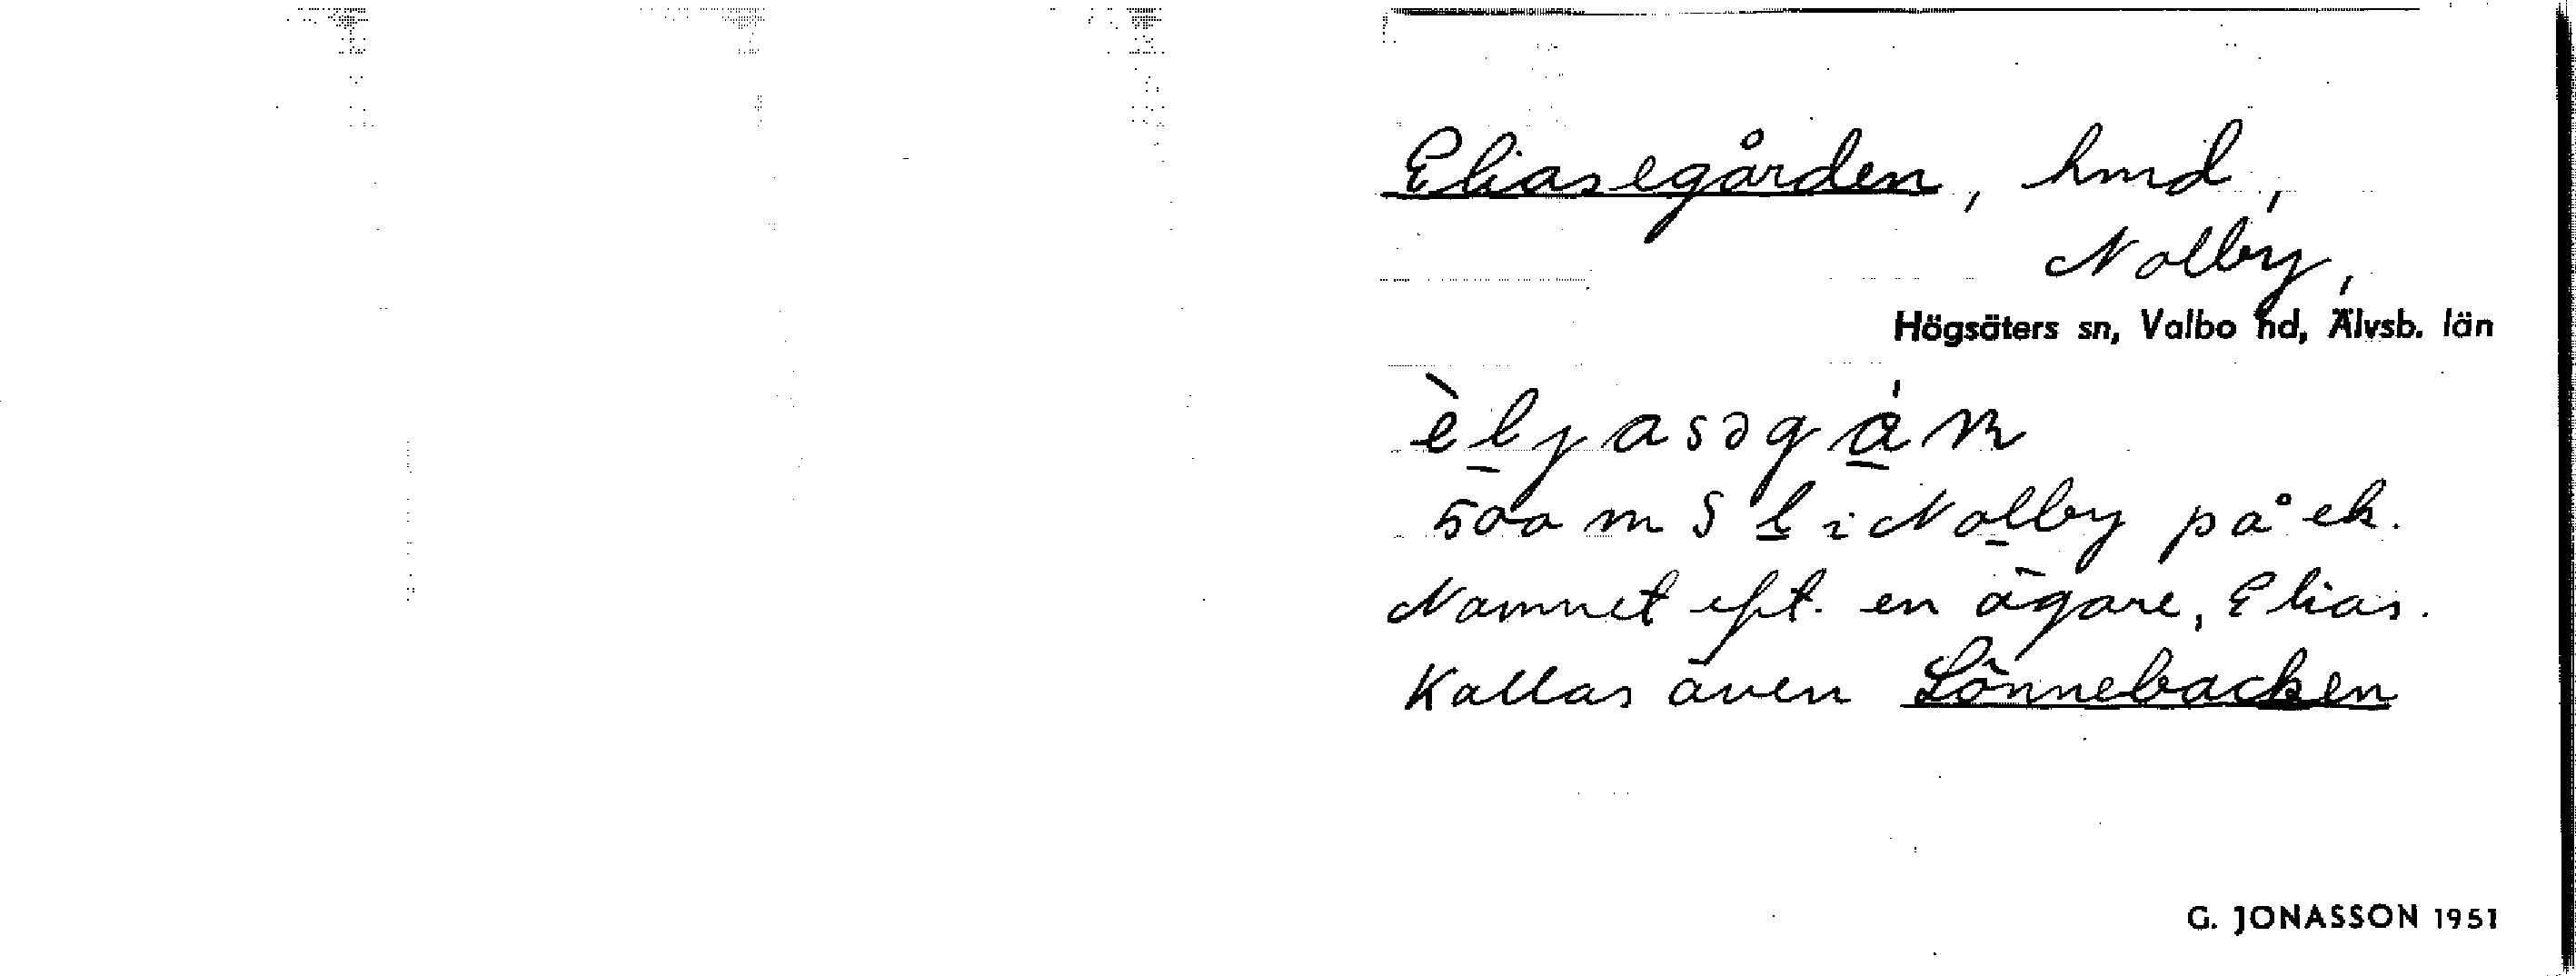 Eliasegården, hmd,
Nolby,
Högsäters sn, Valbo hd, Älvsb. län
500 m S l i Nolby på ek.
Namnet eft. en ägare, Elias.
Kallas även Lönnebacken
G. JONASSON 1951